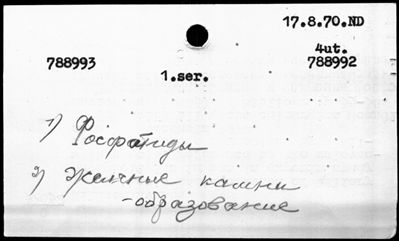 17.8.70.ND
4ut.
788993 788992
1.ser.
1) Фосфатиды
2) Желчные камни
-образование